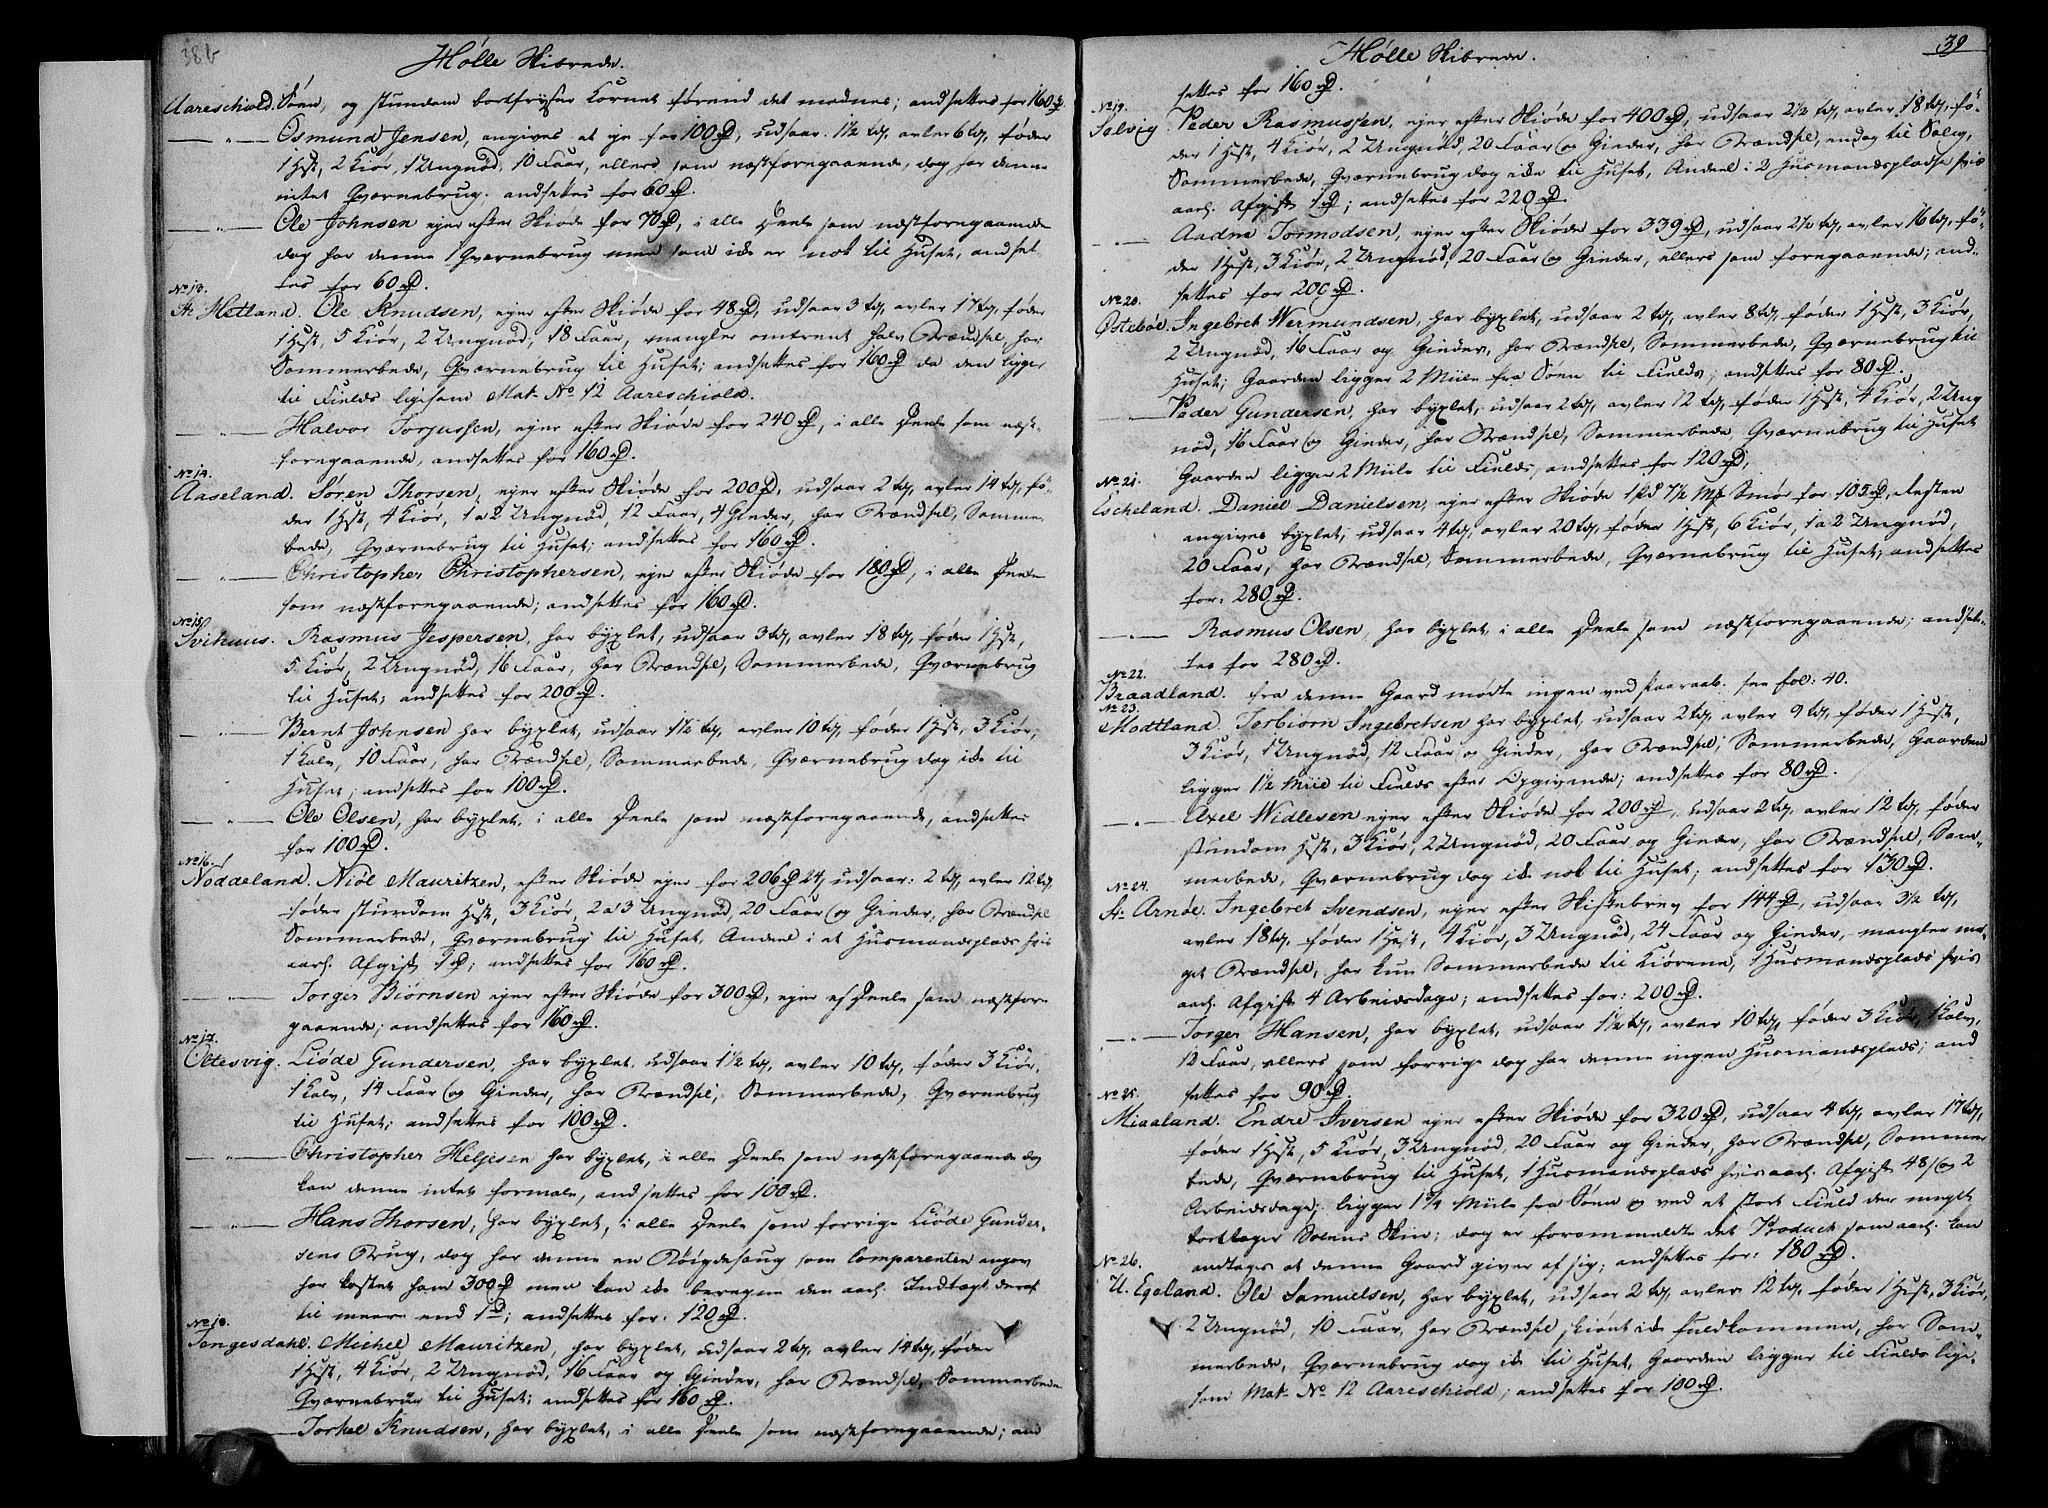 38b
Hølle Skibrede.
Aareschiold. Søen, og stundom bortfryser Kornet førend det modnes; andsettes for 160 rd.
— " — Osmund Jensen, angives at eje for 100 rd, udsaar 1 1/2 td, avler 6 td, føder
1 Hest, 2 Kiør, 1 Ungnød, 10 Faar, ellers som næstforegaaende, dog har denne
intet Qværnebrug. andsettes for 60 rd.
— " — Ole Johnsen ejer efter Skiøde for 70 rd, i alle Deele som næstforegaaende
dog har denne 1 Qværnebrug men som ike er nok til Huset, andset-
tes for 60 rd.
No 13.
St. Hetland. Ole Knudsen, ejer efter Skiøde for 48 rd, udsaar 3 td, avler 17 td, føder
1 Hest, 5 Kiør, 2 Ungnød, 18 Faar, mangler omtrent halv Brændsel, har
Sommerbede, Qværnebrug til Huset; andsettes for 160 rd da den ligger
til Fields ligesom Mat. No 12 Aareschiold.
— " — Halvor Torjussen, ejer efter Skiøde for 240 rd, i alle Deele som næst-
foregaaende, andsettes for 160 rd.
No 14.
Aaseland. Søren Thorsen, ejer efter Skiøde for 200 rd, udsaar 2 td, avler 14 td, fø-
der 1 Hest, 4 Kiør, 1 a 2 Ungnød, 12 Faar, 4 Gieder, har Brændsel, Sommer-
bede, Qværnebrug til Huset; andsettes for 160 rd.
— " — Christopher Christophersen, ejer efter Skiøde for 180 rd, i alle Deele
som næstforegaaende; andsettes for 160 rd.
No 15.
Svihuus. Rasmus Jespersen, har bygslet, udsaar 3 td, avler 18 td, føder 1 Hest,
5 Kiør, 2 Ungnød, 16 Faar, har Brændsel, Sommerbede, Qværnebrug
til Huset; andsettes for 200 rd.
— " — Bernt Johnsen har bygslet, udsaar 1 1/2 td, avler 10 td, føder 1 Hest, 3 Kiør,
1 Kalv, 10 Faar, har Brændsel, Sommerbede, Qværnebrug dog ike til
Huset; andsettes for 100 rd.
— " — Ole Olsen, har bygslet, i alle Deele som næstforegaaende, andsettes
for 100 rd.
No 16.
Noddeland. Niöl Mauritzen, efter Skiøde ejer for 206 rd 24, udsaar: 2 td, avler 12 td,
føder stundom Hest, 3 Kiør, 2 a 3 Ungnød, 20 Faar og Gieder, har Brændsel
Sommerbede, Qværnebrug til Huset, Andeel i et Husmandsplads hvis
aarl. Afgift 1 rd; andsettes for 160 rd.
— " — Torger Biørnsen ejer efter Skiøde for 300 rd, ejer af Deele som næstfore
gaaende; andsettes for 160 rd.
No 17.
Ottesvig. Liøde Gundersen, har bygslet, udsaar 1 1/2 td, avler 10 td, føder 3 Kiør,
1 Kalv, 14 Faar og Gieder, har Brændsel, Sommerbede, Qværnebrug
til Huset; andsettes for 100 rd.
— " — Christopher Heljesen har bygslet, i alle Deele som næstforegaaende dog
kan denne intet formale, andsettes for 100 rd.
— " — Hans Thorsen, har bygslet, i alle Deele som forrige Liøde Gunder-
sens Brug, dog har denne en Bøigdesaug som Comparenten angav
har kostet ham 300 rd men kan ike beregne den aarl. Indtægt deraf
til meere end 1 rd; andsettes for: 120 rd.
No 18.
Tengesdahl. Michel Mauritzen, har bygslet, udsaar 2 td, avler 14 td, føder
1 Hest, 4 Kiør, 2 Ungnød, 16 Faar og Gieder, har Brændsel, Sommerbede
Qværnebrug til Huset; andsettes for 160 rd.
— " — Torkel Knudsen, har bygslet, i alle Deele som næstforegaaende; and
39
Hølle Skibrede.
settes for 160 rd.
No 19.
Solvig. Peder Rasmussen, ejer efter Skiøde for 400 rd, udsaar 2 1/2 td, avler 18 td, fø-
der 1 Hest, 4 Kiør, 2 Ungnød, 20 Faar og Gieder, har Brændsel, endog til Salg,
Sommerbede, Qværnebrug dog ike til Huset, Andeel i 2 Husmandspladse hvis
aarl. Afgift 1 rd; andsettes for 220 rd.
— " — Aadne Tormodsen, ejer efter Skiøde for 339 rd, udsaar 2 1/2 td, avler 16 td, fø-
der 1 Hest, 3 Kiør, 2 Ungnød, 20 Faar og Gieder, ellers som foregaaende; and-
settes for 200 rd.
No 20.
Østebøe. Ingebret Wermundsen, har bygslet, udsaar 2 td, avler 8 td, føder 1 Hest, 3 Kiør,
2 Ungnød, 16 Faar og Gieder, har Brændsel, Sommerbede, Qværnebrug til
Huset; Gaarden ligger 2 Miile fra Søen til Fields; andsettes for 80 rd.
— Peder Gundersen, har bygslet, udsaar 2 td, avler 12 td, føder 1 Hest, 4 Kiør, 2 Ung
nød, 16 Faar og Gieder, har Brændsel, Sommerbede, Qværnebrug til Huset
Gaarden ligger 2 Miile til Fields, andsettes for 120 rd;
No 21.
Escheland. Daniel Danielsen, ejer efter Skiøde 1 pd 7 1/2 mk Smør for 105 rd, Resten
angives bygslet, udsaar 4 td, avler 20 td, føder 1 Hest, 6 Kiør, 1 a 2 Ungnød,
20 Faar, har Brændsel, Sommerbede, Qværnebrug til Huset; andsettes
for: 280 rd.
— " — Rasmus Olsen, har bygslet, i alle Deele som næstforegaaende; andset-
tes for 280 rd.
No 22.
Braadland. fra denne Gaard mødte ingen ved Paaraab. see fol: 40.
No 23.
Modtland. Torbiørn Ingebretsen har bygslet, udsaar 2 td, avler 9 td, føder 1 Hest,
3 Kiør, 1 Ungnød, 12 Faar og Gieder, har Brændsel, Sommerbede, Gaarden
ligger 1 1/2 Miil til Fields efter Opgivende; andsettes for 80 rd.
— " — Axel Widlesen ejer efter Skiøde for 200 rd, udsaar 2 td, avler 12 td, føder
stundom Hest, 3 Kiør, 2 Ungnød, 20 Faar og Gieder, har Brændsel, Som-
merbede, Qværnebrug dog ike nok til Huset; andsettes for 130 rd.
No 24.
St: Arnøe. Ingebret Svendsen, ejer efter Skiftebrev for 144 rd, udsaar 3 1/2 td,
avler 18 td, føder 1 Hest, 4 Kiør, 3 Ungnød, 24 Faar og Gieder, mangler me-
get Brændsel, har kun Sommerbede til Kiørene, 1 Husmandsplads hvis
aarl. Afgift 4 Arbeidsdage; andsettes for: 200 rd.
— " — Torger Hansen, har bygslet, udsaar 1 1/2 td, avler 10 td, føder 3 Kiør, 1 Kalv,
12 Faar, ellers som forrige dog har denne ingen Husmandsplads; and
settes for 90 rd.
No 25.
Miaaland. Endre Iversen ejer efter Skiøde for 320 rd, udsaar 4 td, avler 17 td,
føder 1 Hest, 5 Kiør, 3 Ungnød, 20 Faar og Gieder, har Brændsel, Sommer
bede, Qværnebrug til Huset, 1 Husmandsplads hvis aarl. Afgift 48 s og 2
Arbeidsdage; ligger 1 3/4 Miile fra Søen og ved et stort Field der meget
borttager Solens Skin; dog er foranmeldte det Product som aarl. kan
andtages at denne Gaard giver af sig; andsettes for: 180 rd.
No 26.
U. Egeland. Ole Samuelsen, har bygslet, udsaar 2 td, avler 12 td, føder 1 Hest, 3 Kiør,
2 Ungnød, 10 Faar, har Brændsel skiønt ike fuldkommen, har Som-
merbede, Qværnebrug dog ike til Huset, Gaarden ligger til Fields lige-
som Mat. No 12 Aareschiold; andsettes for 100 rd.